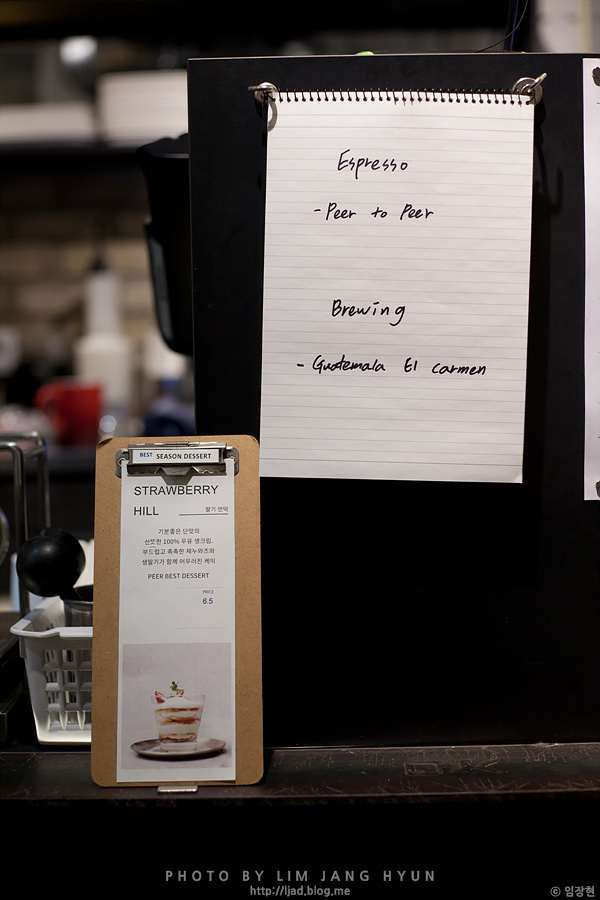 Espresso
- Peer to Peer
Brewing
- Guatemala El carmen
BEST SEASON DESSERT
STRAWBERRY
HILL 딸기 언덕
기분좋은 단맛의
산뜻한 100% 우유 생크림,
부드럽고 촉촉한 제누와즈와
생딸기가 함께 어우러진 케익
PEER BEST DESSERT
PRICE
6.5
PHOTO BY LIM JANG HYUN
http://ljad.blog.me
© 임장현